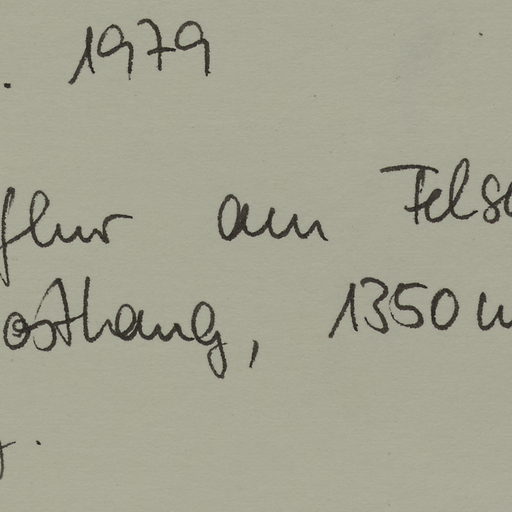 . 1979
flur am Fels
osthang, 1350 m
.